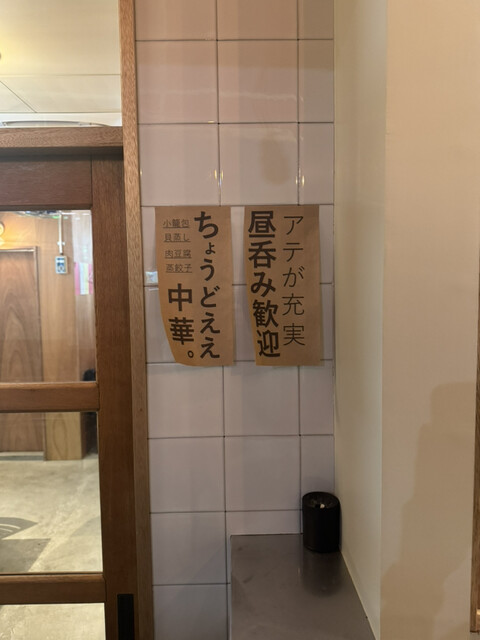 アテが充実
昼呑み歓迎
ちょうどええ
中華。
小籠包
貝蒸し
肉豆腐
蒸餃子